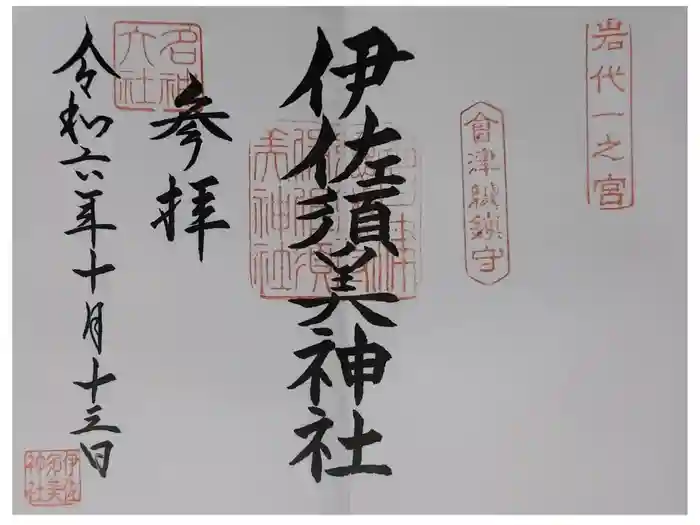 岩代一之宮
會津總鎮守
伊佐須美神社
参拝
名神大社
令和六年十月十三日
伊佐須美神社